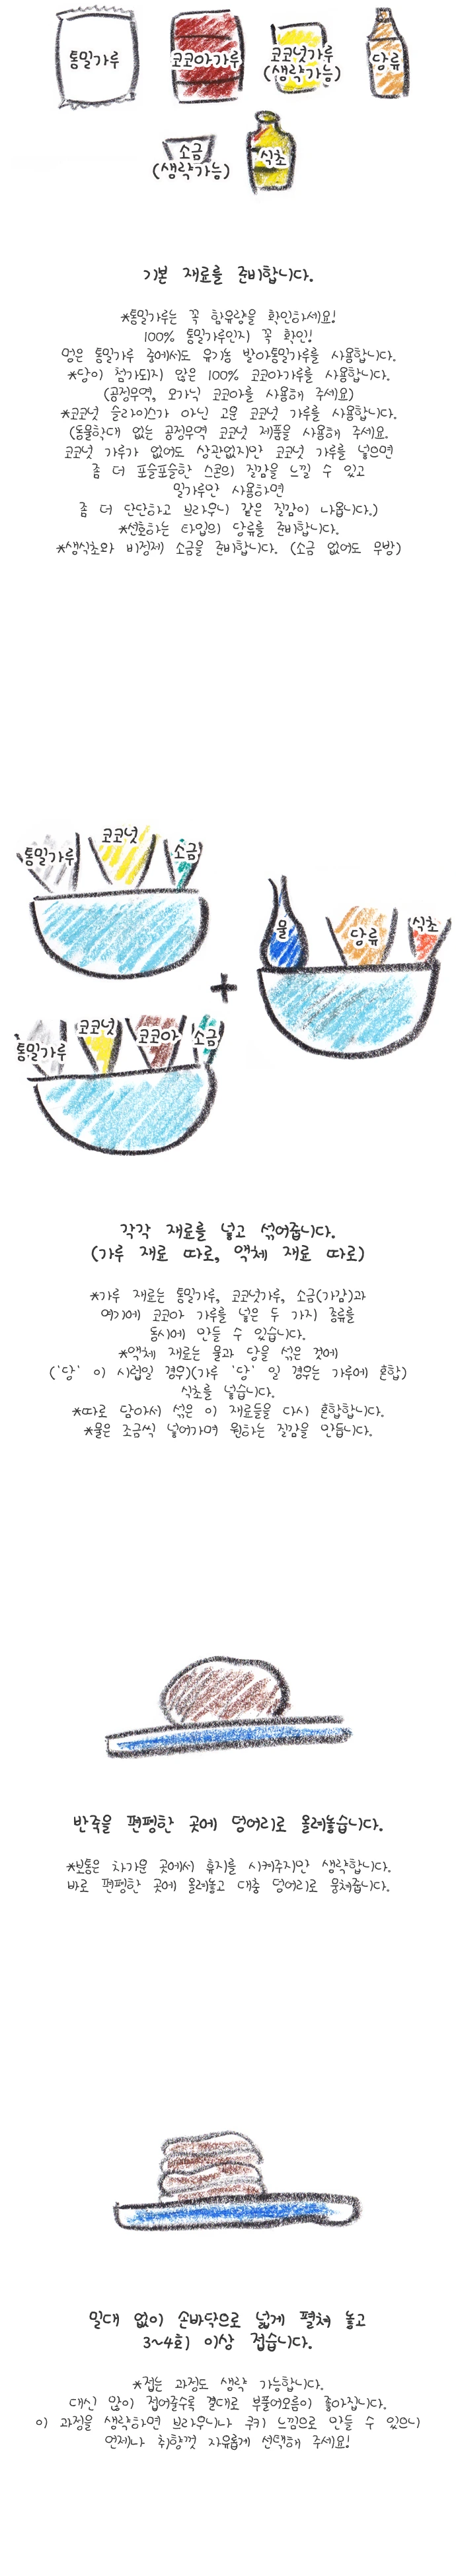 통밀가루
코코아가루
코코넛가루
(생략가능)
당류
소금
(생략가능)
식초
기본 재료를 준비합니다.
*통밀가루는 꼭 함유량을 확인하세요!
100% 통밀가루인지 꼭 확인!
멍은 통밀가루 중에서도 유기농 발아통밀가루를 사용합니다.
*당이 첨가되지 않은 100% 코코아가루를 사용합니다.
(공정무역, 오가닉 코코아를 사용해 주세요)
*코코넛 슬라이스가 아닌 고운 코코넛 가루를 사용합니다.
(동물학대 없는 공정무역 코코넛 제품을 사용해 주세요.
코코넛 가루가 없어도 상관없지만 코코넛 가루를 넣으면
좀 더 포슬포슬한 스콘의 질감을 느낄 수 있고
밀가루만 사용하면
좀 더 단단하고 브라우니 같은 질감이 나옵니다.)
*선호하는 타입의 당류를 준비합니다.
*생식초와 비정제 소금을 준비합니다. (소금 없어도 무방)
통밀가루
코코넛
소금
물
당류
식초
+
통밀가루
코코넛
코코아
소금
각각 재료를 넣고 섞어줍니다.
(가루 재료 따로, 액체 재료 따로)
*가루 재료는 통밀가루, 코코넛가루, 소금(가감)과
여기에 코코아 가루를 넣은 두 가지 종류를
동시에 만들 수 있습니다.
*액체 재료는 물과 당을 섞은 것에
('당' 이 시럽일 경우)(가루 '당' 일 경우는 가루에 혼합)
식초를 넣습니다.
*따로 담아서 섞은 이 재료들을 다시 혼합합니다.
*물은 조금씩 넣어가며 원하는 질감을 만듭니다.
반죽을 편평한 곳에 덩어리로 올려놓습니다.
*보통은 차가운 곳에서 휴지를 시켜주지만 생략합니다.
바로 편평한 곳에 올려놓고 대충 덩어리로 뭉쳐줍니다.
밀대 없이 손바닥으로 넓게 펼쳐 놓고
3~4회 이상 접습니다.
*접는 과정도 생략 가능합니다.
대신 많이 접어줄수록 결대로 부풀어오름이 좋아집니다.
이 과정을 생략하면 브라우니나 쿠키 느낌으로 만들 수 있으니
언제나 취향껏 자유롭게 선택해 주세요!